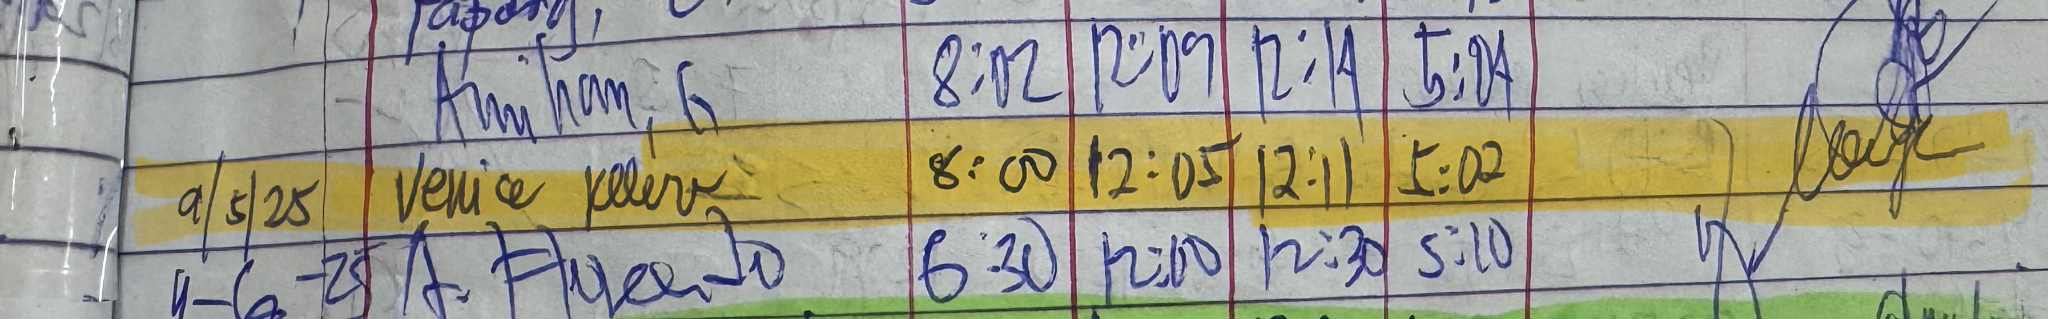 Amihan, G 8:02 12:09 12:14 5:04
9/5/25 Venice 8:00 12:05 12:11 5:02
9-6-25 A. 6:30 12:00 12:30 5:10